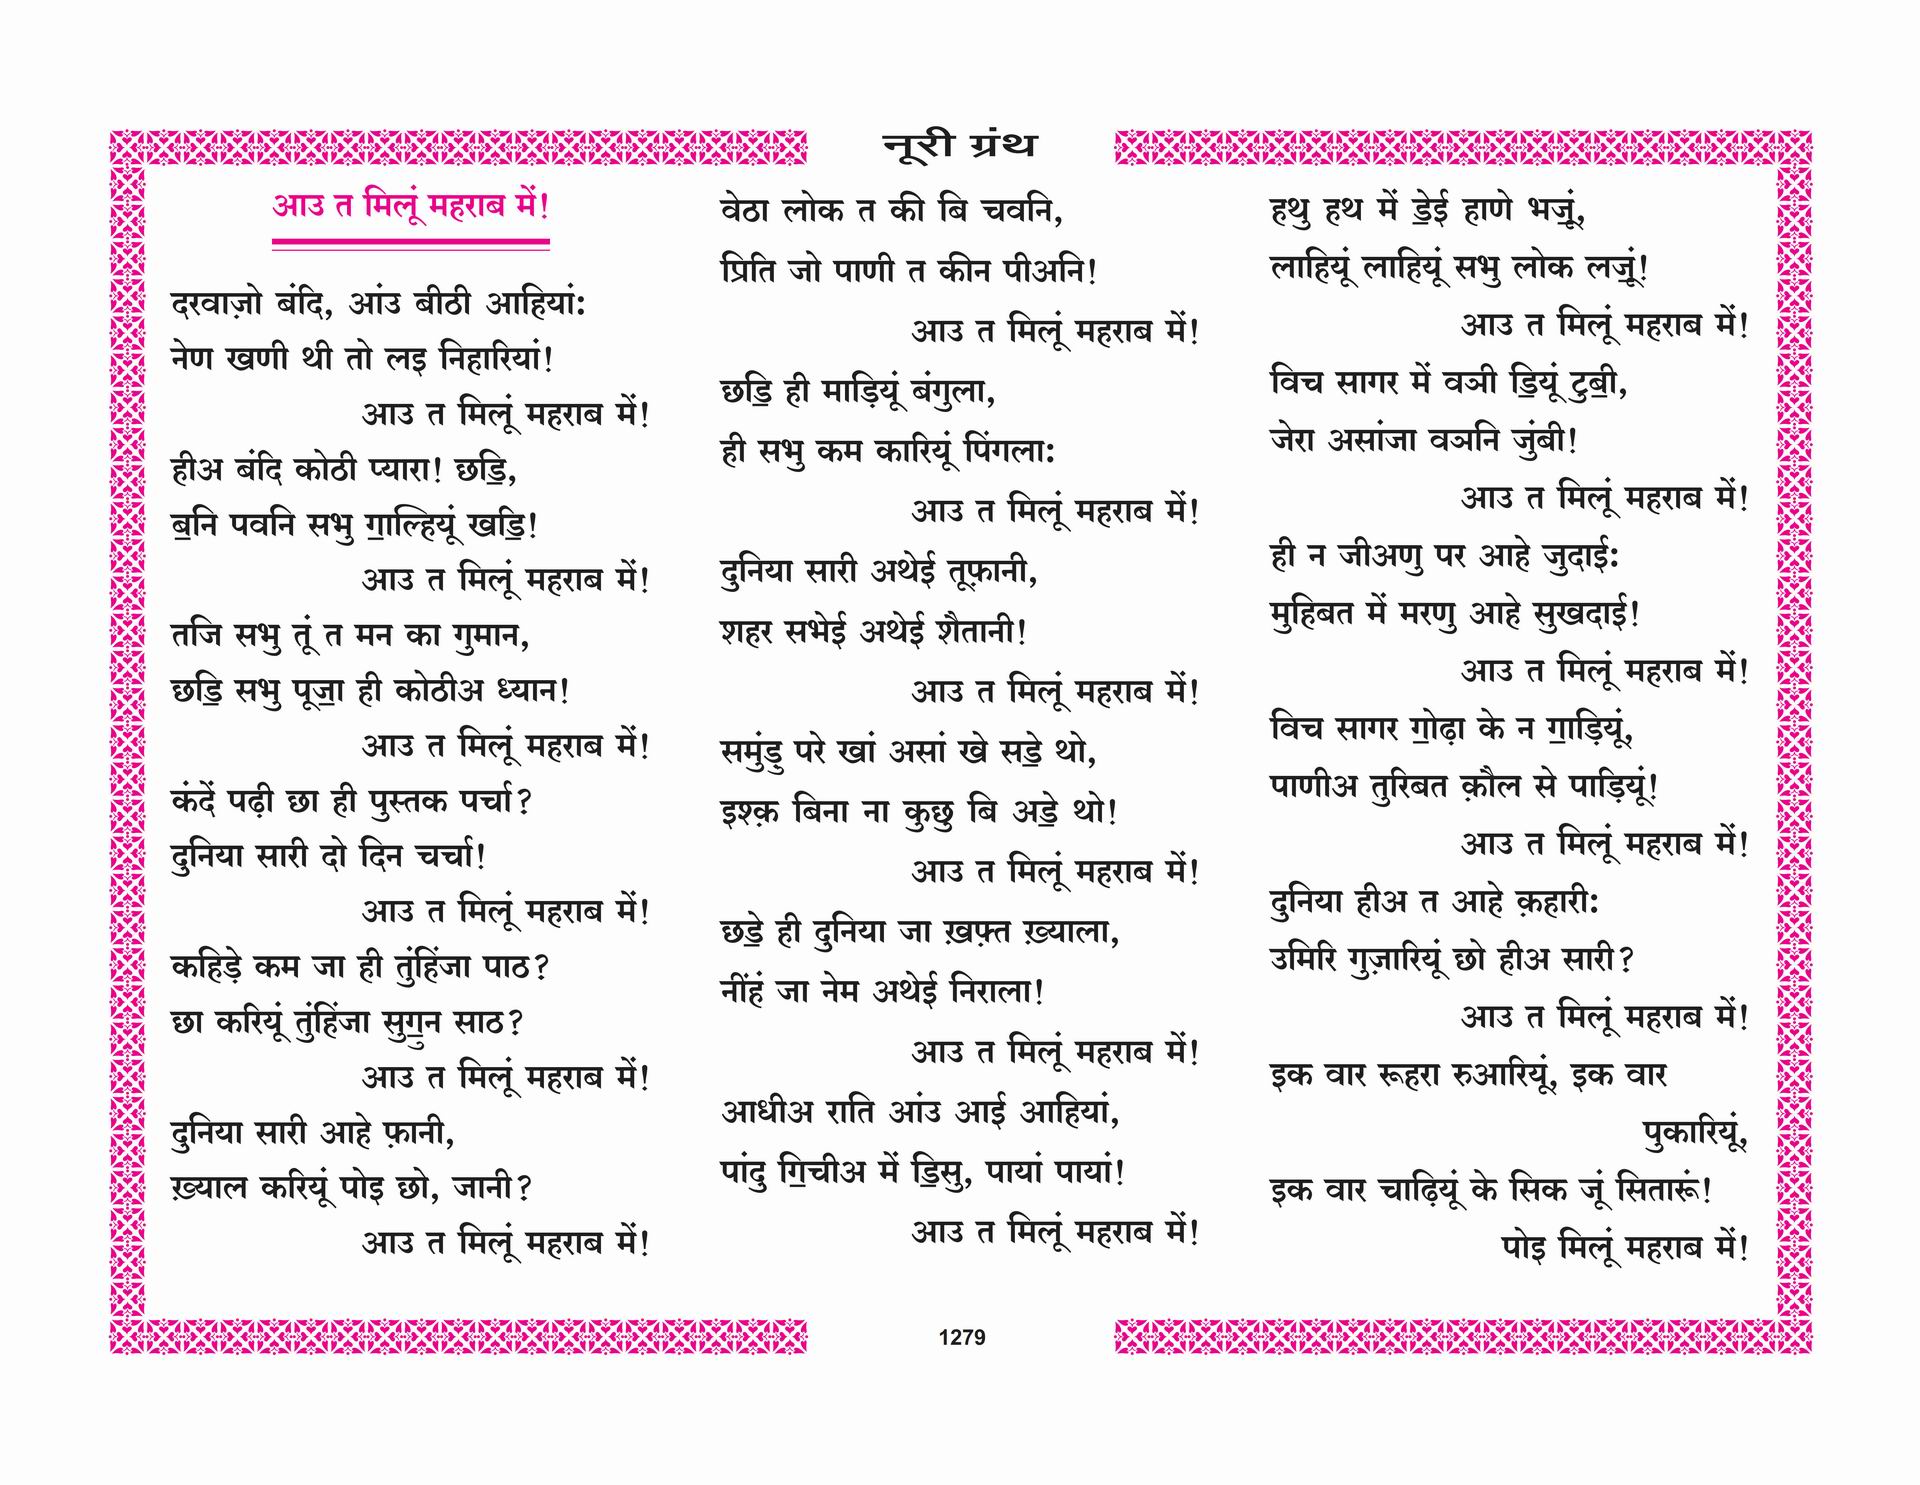 नूरी ग्रंथ
आउ त मिलूं महराब में!
दरवाज़ो बंदि, आंउ बीठी आहियां:
नेण खणी थी तो लइ निहारियां!
आउ त मिलूं महराब में!
हीअ बंदि कोठी प्यारा! छॾि,
ॿनि पवनि सभु ॻाल्हियूं खॾि!
आउ त मिलूं महराब में!
तजि सभु तूं त मन का गुमान,
छॾि सभु पूॼा ही कोठीअ ध्यान!
आउ त मिलूं महराब में!
कंदें पढ़ी छा ही पुस्तक पर्चा?
दुनिया सारी दो दिन चर्चा!
आउ त मिलूं महराब में!
कहिड़े कम जा ही तुंहिंजा पाठ?
छा करियूं तुंहिंजा सुॻुन साठ?
आउ त मिलूं महराब में!
दुनिया सारी आहे फ़ानी,
ख़्याल करियूं पोइ छो, जानी?
आउ त मिलूं महराब में!
वेठा लोक त की बि चवनि,
प्रिति जो पाणी त कीन पीअनि!
आउ त मिलूं महराब में!
छॾि ही माड़ियूं बंगुला,
ही सभु कम कारियूं पिंगला:
आउ त मिलूं महराब में!
दुनिया सारी अथेई तूफ़ानी,
शहर सभेई अथेई शैतानी!
आउ त मिलूं महराब में!
समुंडु परे खां असां खे सॾे थो,
इश्क़ बिना ना कुछु बि अॾे थो!
आउ त मिलूं महराब में!
छॾे ही दुनिया जा ख़फ़्त ख़्याला,
नींहं जा नेम अथेई निराला!
आउ त मिलूं महराब में!
आधीअ राति आंउ आई आहियां,
पांदु ॻिचीअ में ॾिसु, पायां पायां!
आउ त मिलूं महराब में!
हथु हथ में ॾेई हाणे भॼूं,
लाहियूं लाहियूं सभु लोक लॼूं!
आउ त मिलूं महराब में!
विच सागर में वञी ॾियूं टुॿी,
जेरा असांजा वञनि जुंबी!
आउ त मिलूं महराब में!
ही न जीअणु पर आहे जुदाई:
मुहिबत में मरणु आहे सुखदाई!
आउ त मिलूं महराब में!
विच सागर ॻोढ़ा के न ॻाड़ियूं,
पाणीअ तुरिबत क़ौल से पाड़ियूं!
आउ त मिलूं महराब में!
दुनिया हीअ त आहे क़हारी:
उमिरि गुज़ारियूं छो हीअ सारी?
आउ त मिलूं महराब में!
इक वार रूहरा रुआरियूं, इक वार
पुकारियूं,
इक वार चाढ़ियूं के सिक जूं सितारूं!
पोइ मिलूं महराब में!
1279